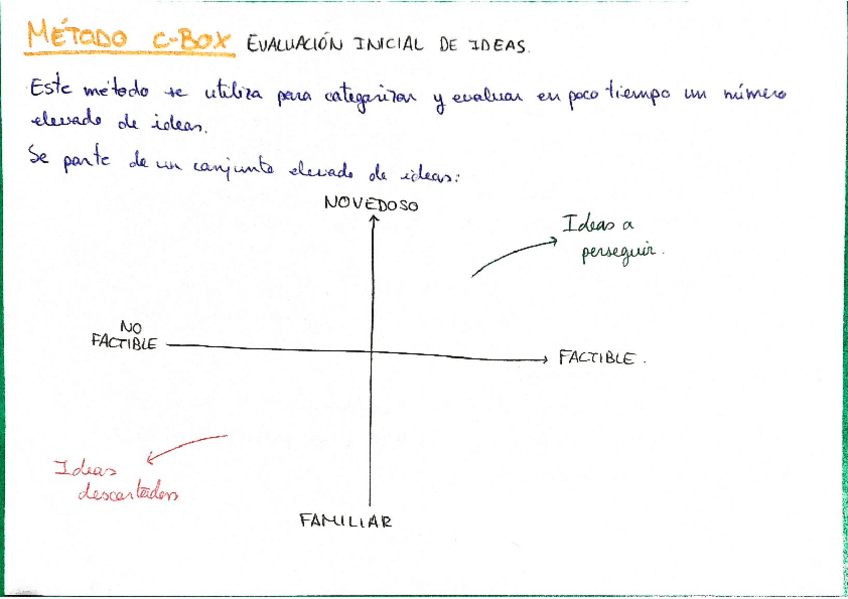 MÉTODO C-BOX EVALUACIÓN INICIAL DE IDEAS.
Este método se utiliza para categorizar y evaluar en poco tiempo un número
elevado de ideas.
Se parte de un conjunto elevado de ideas:
NOVEDOSO
Ideas a
perseguir.
NO
FACTIBLE
FACTIBLE.
Ideas
descartadas
FAMILIAR